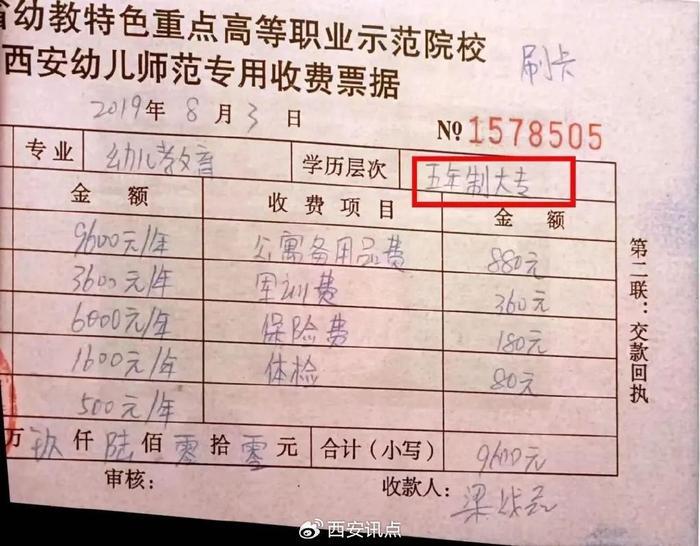 省幼教特色重点高等职业示范院校
西安幼儿师范专用收费票据
刷卡
2019年8月3日
№1578505
专业 幼儿教育 学历层次 五年制大专
金额 收费项目 金额
9600元/年 公寓备用品费 880元
3600元/年 军训费 360元
6000元/年 保险费 180元
1600元/年 体检 80元
500元/年
万玖仟陆佰零拾零元 合计(小写) 9600元
审核: 收款人: 梁
第二联:交款回执
西安讯点